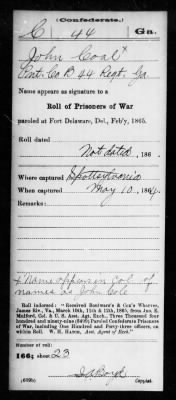 (Confederate.)
C 44 Ga.
John Coal x
Pvt., Co. B, 44 Regt. Ga.
Name appears as signature to a
Roll of Prisoners of War
paroled at Fort Delaware, Del., Feb'y, 1865.
Roll dated
Not dated, 186 .
Where captured Spottsylvania
When captured May 10, 1864.
Remarks:
x Name appears in Col. of
names as John Cole
Roll indorsed: "Received Boulware's & Cox's Wharves,
James Riv., Va., March 10th, 11th & 12th, 1865, from Jno. E.
Mulford, Col. & U. S. Asst. Agt. Exch., Three Thousand four
hundred and ninety-nine (3499) Paroled Confederate Prisoners
of War, including One Hundred and Forty-three officers, on
within Roll. W. H. Hatch, Asst. Agent of Exch."
Number of roll:
166; sheet 23
Copyist.